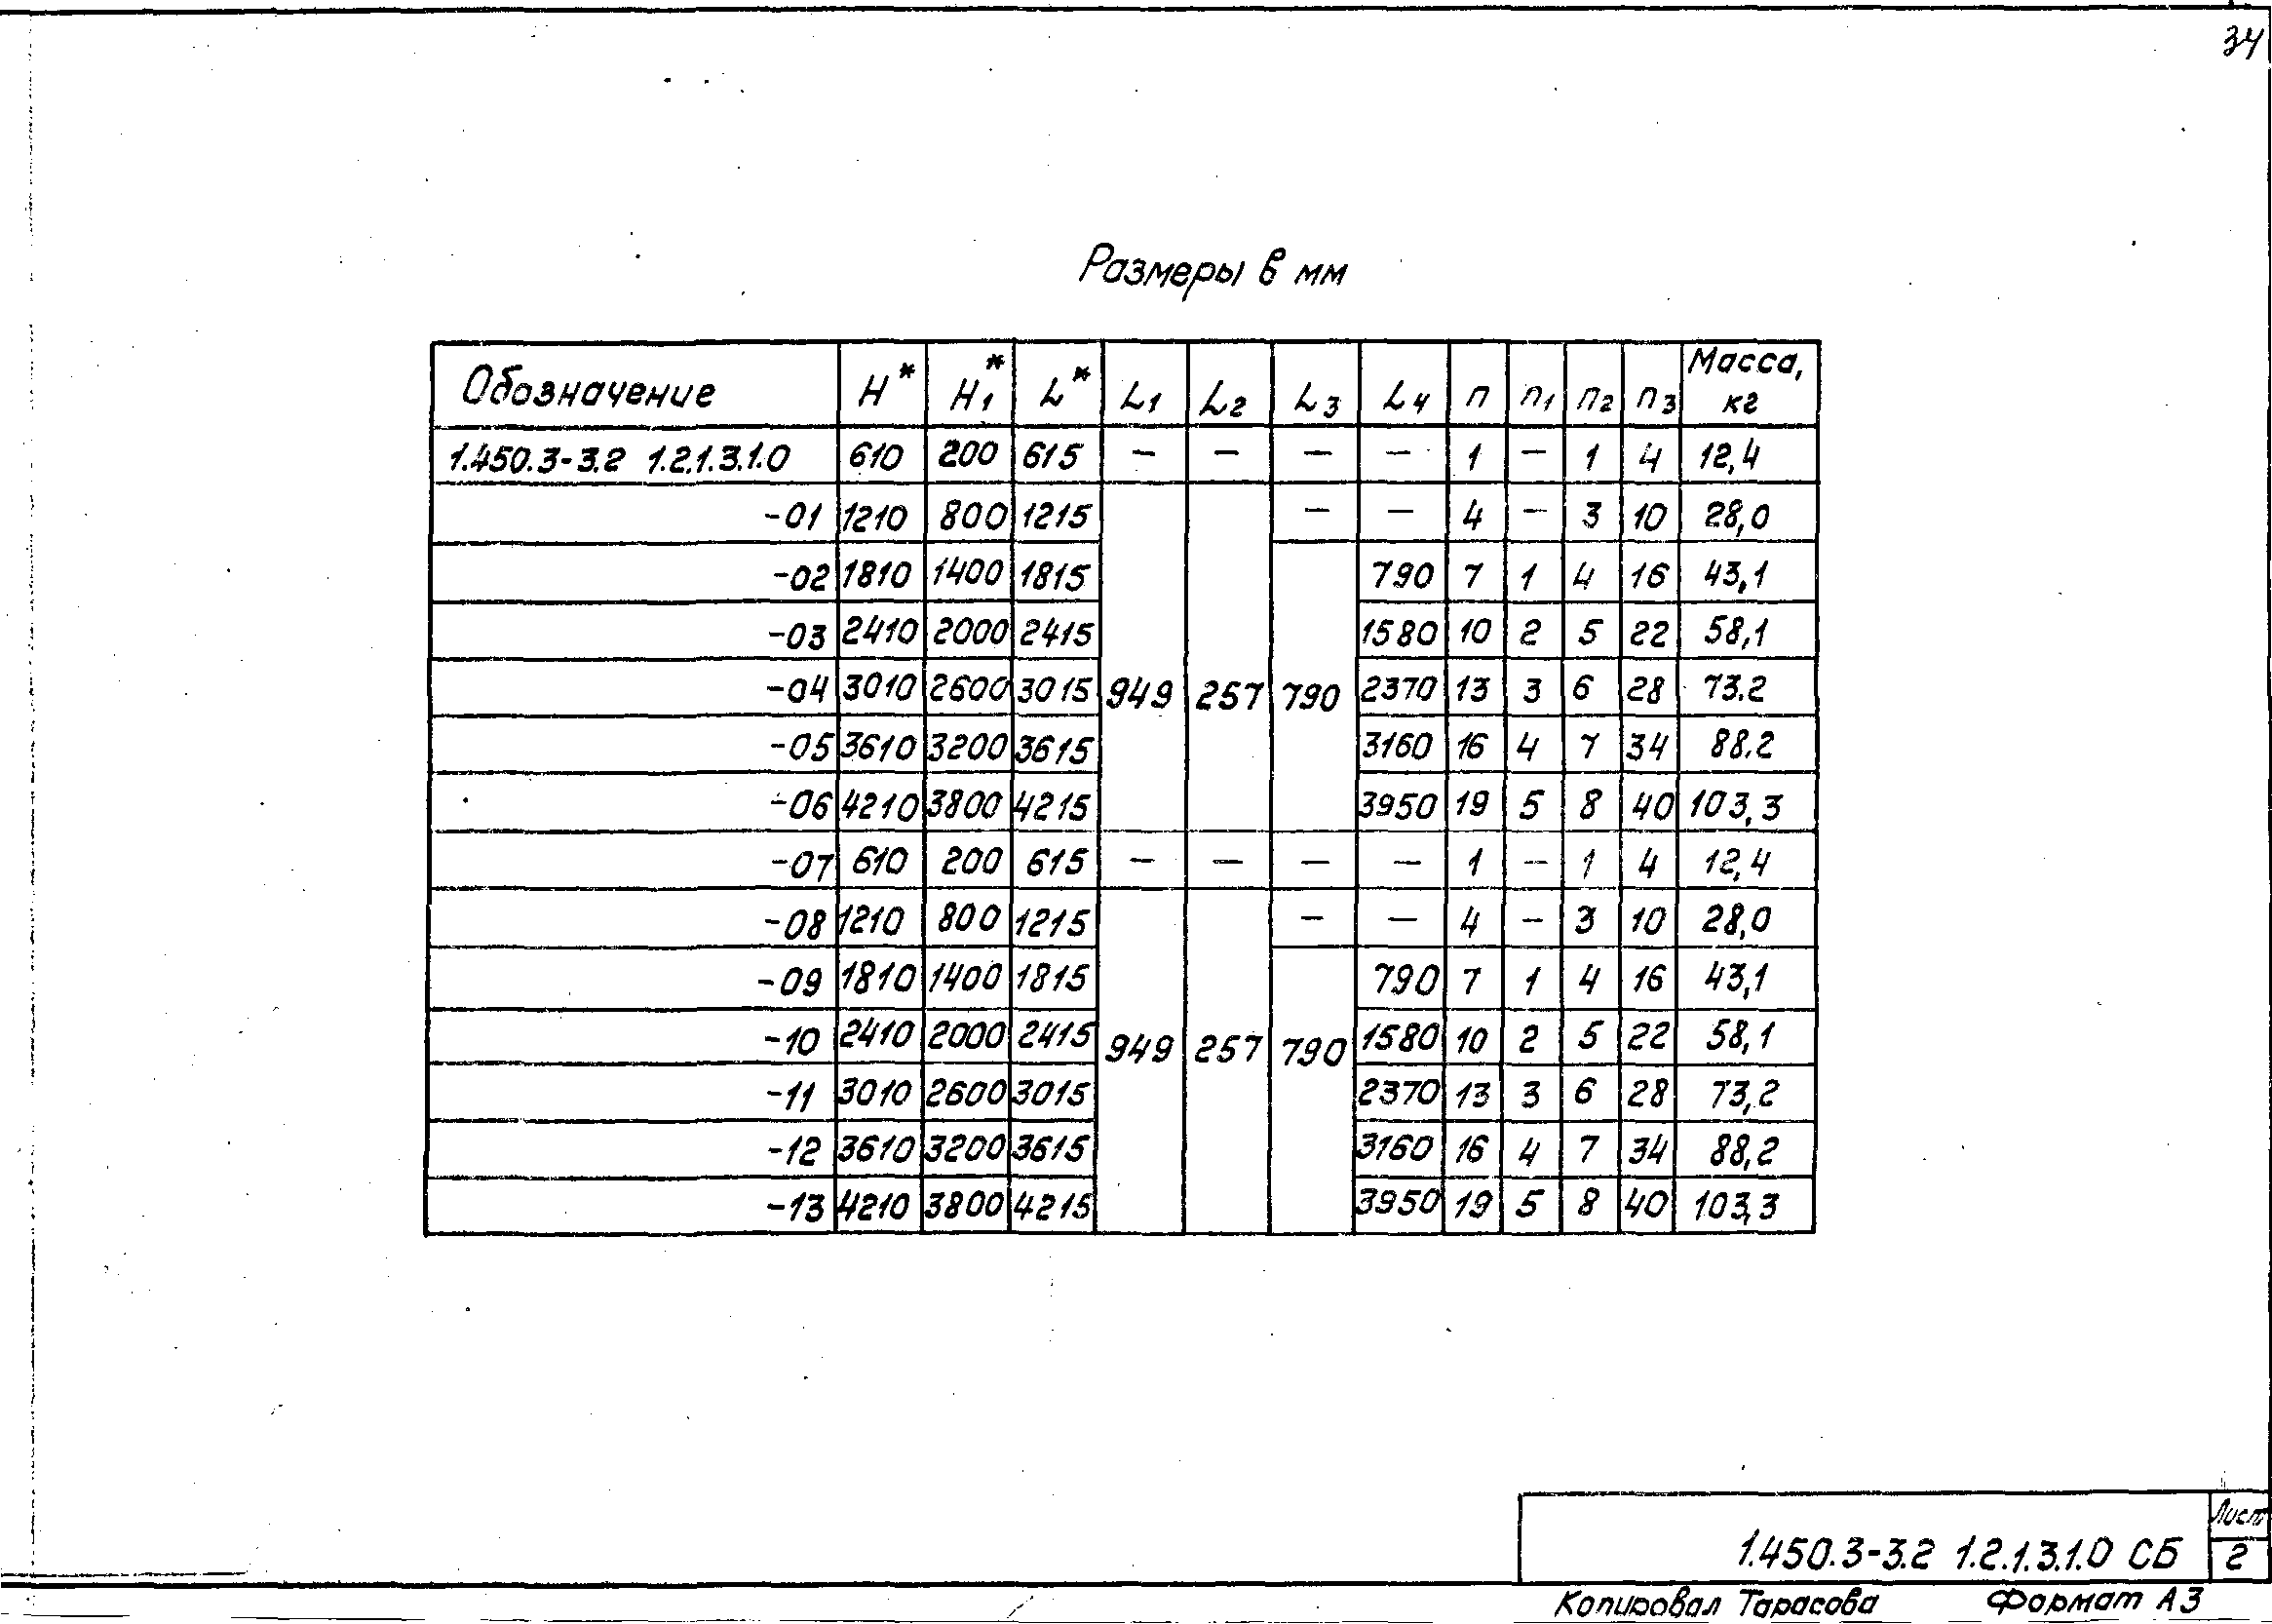 34
Размеры в мм
Обозначение H* H1* L* L1 L2 L3 L4 n n1 n2 n3 Масса, кг
1.450.3-3.2 1.2.1.3.1.0 610 200 615 — — — — 1 — 1 4 12,4
-01 1210 800 1215 — — 4 — 3 10 28,0
-02 1810 1400 1815 790 7 1 4 16 43,1
-03 2410 2000 2415 1580 10 2 5 22 58,1
-04 3010 2600 3015 949 257 790 2370 13 3 6 28 73.2
-05 3610 3200 3615 3160 16 4 7 34 88.2
-06 4210 3800 4215 3950 19 5 8 40 103,3
-07 610 200 615 — — — — 1 — 1 4 12,4
-08 1210 800 1215 — — 4 — 3 10 28,0
-09 1810 1400 1815 790 7 1 4 16 43,1
-10 2410 2000 2415 949 257 790 1580 10 2 5 22 58,1
-11 3010 2600 3015 2370 13 3 6 28 73,2
-12 3610 3200 3615 3160 16 4 7 34 88,2
-13 4210 3800 4215 3950 19 5 8 40 103,3
Лист
1.450.3-3.2 1.2.1.3.1.0 СБ 2
Копировал Тарасова Формат А3